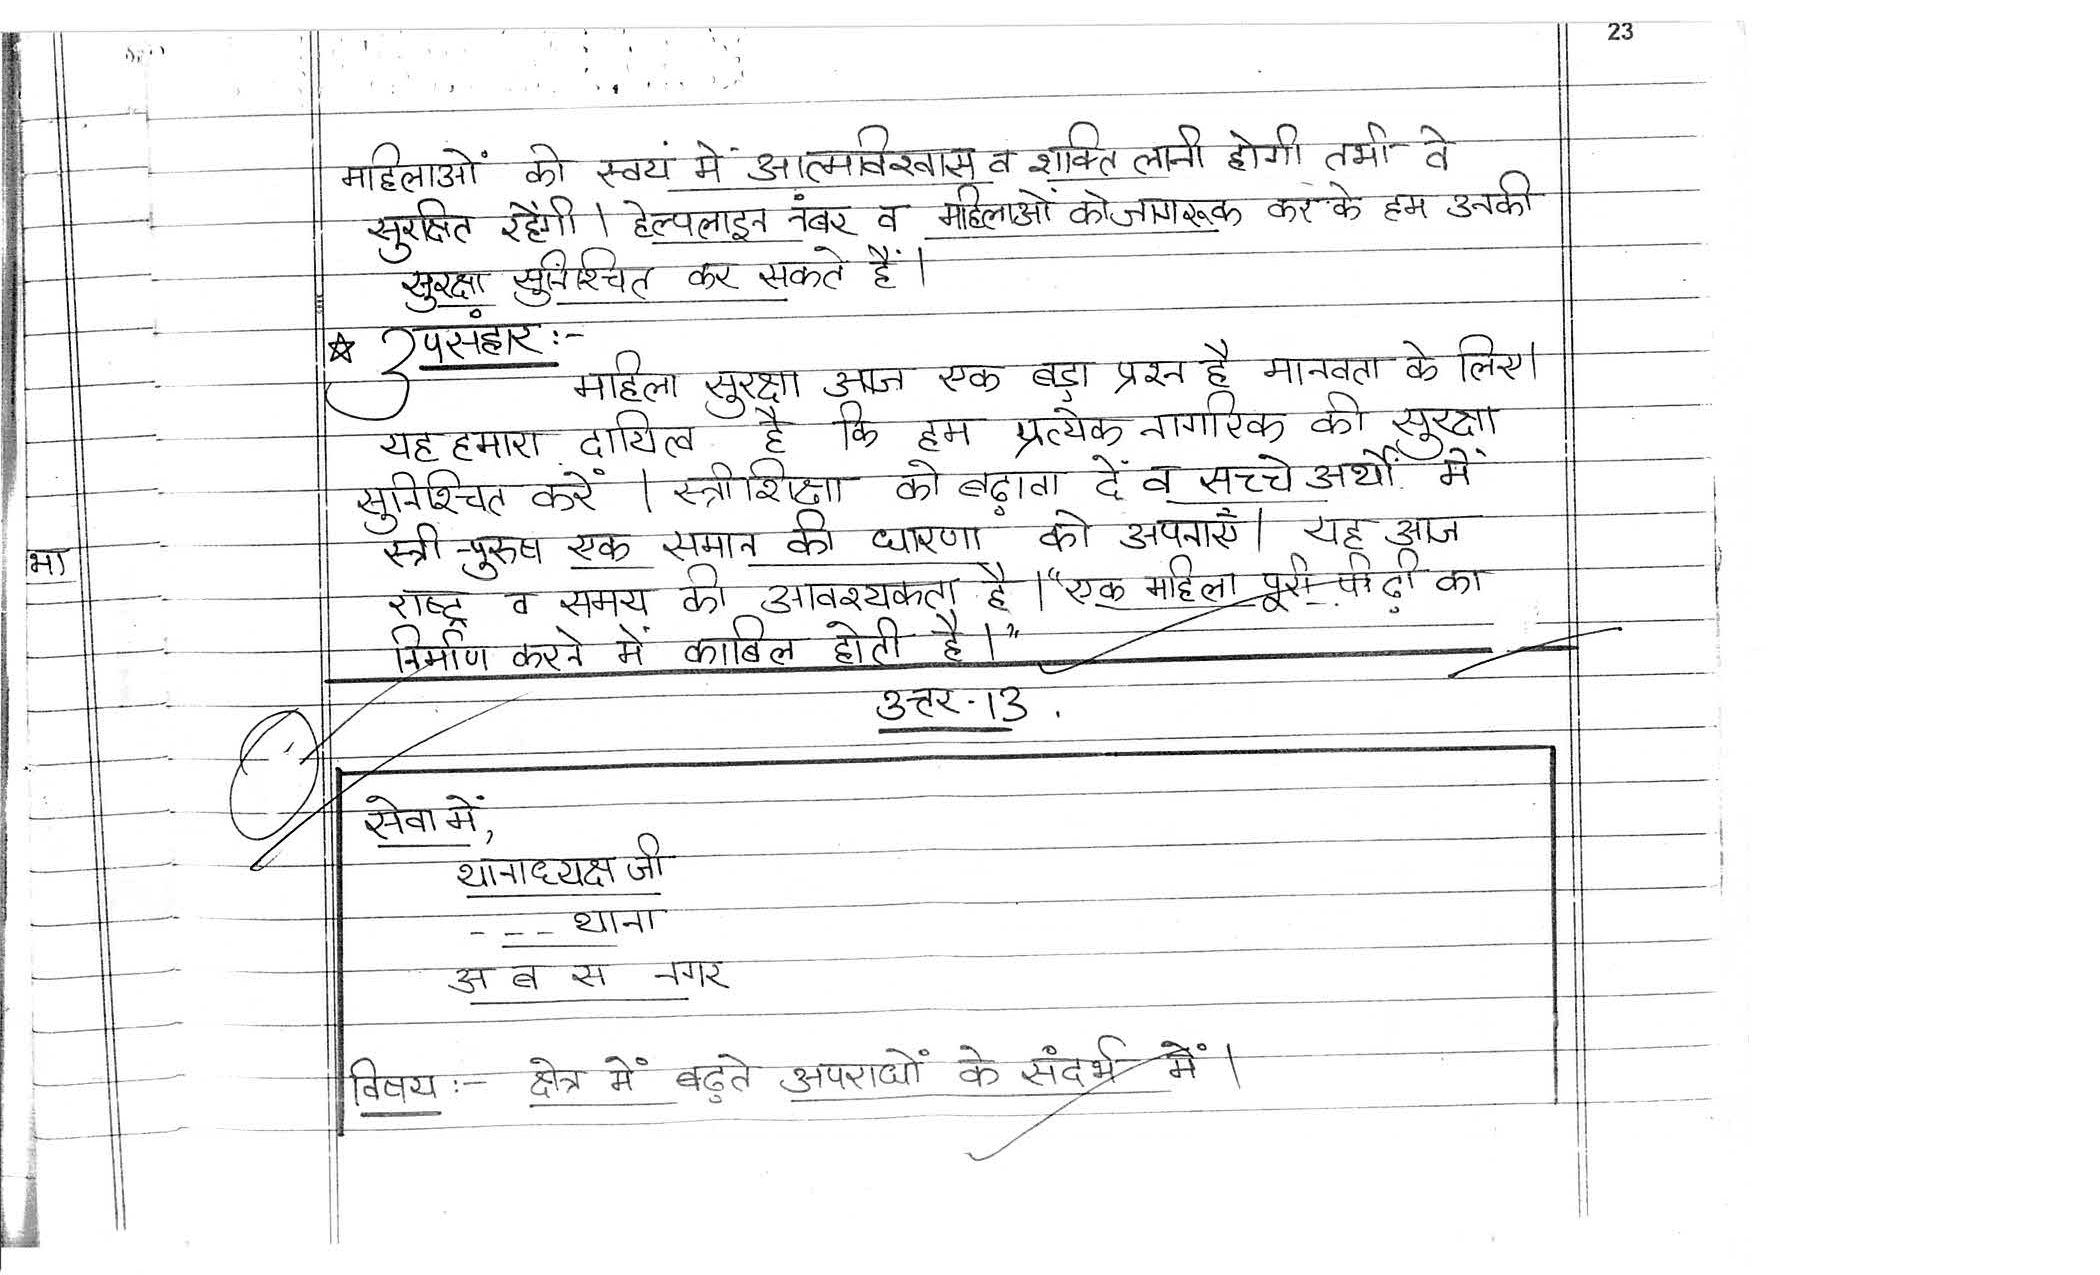 23
महिलाओं को स्वयं में आत्मविश्वास व शक्ति लानी होगी तभी वे
सुरक्षित रहेंगी । हेल्पलाइन नंबर व महिलाओं को जागरूक कर के हम उनकी
सुरक्षा सुनिश्चित कर सकते हैं ।
☆ उपसंहार :-
महिला सुरक्षा आज एक बड़ा प्रश्न है मानवता के लिए।
यह हमारा दायित्व है कि हम प्रत्येक नागरिक की सुरक्षा
सुनिश्चित करें । स्त्री शिक्षा को बढ़ावा दें व सच्चे अर्थों में
स्त्री-पुरुष एक समान की धारणा को अपनाएँ। यह आज
भा
राष्ट्र व समय की आवश्यकता है ।"एक महिला पूरी पीढ़ी का
निर्माण करने में काबिल होती है ।"
उत्तर-13.
सेवा में,
थानाध्यक्ष जी
---- थाना
अ ब स नगर
विषय :- क्षेत्र में बढ़ते अपराधों के संदर्भ में ।